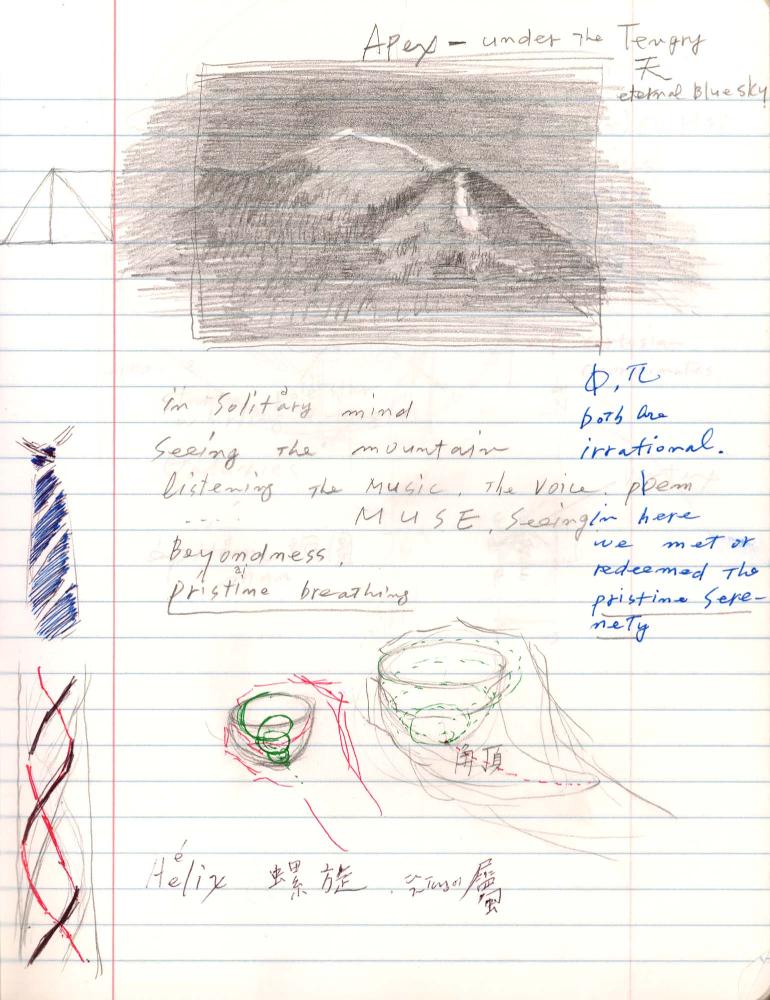 Apex - under the Tengry
天
eternal Blue sky
Φ, π
both are
irrational.
in solitary mind
Seeing the mountain
listening the Music, the voice, poem
..... MUSE, Seeing
Beyondness,
pristine breathing
in here
we met or
redeemed the
pristine Sere-
neTy
角頂
Hélix 螺旋